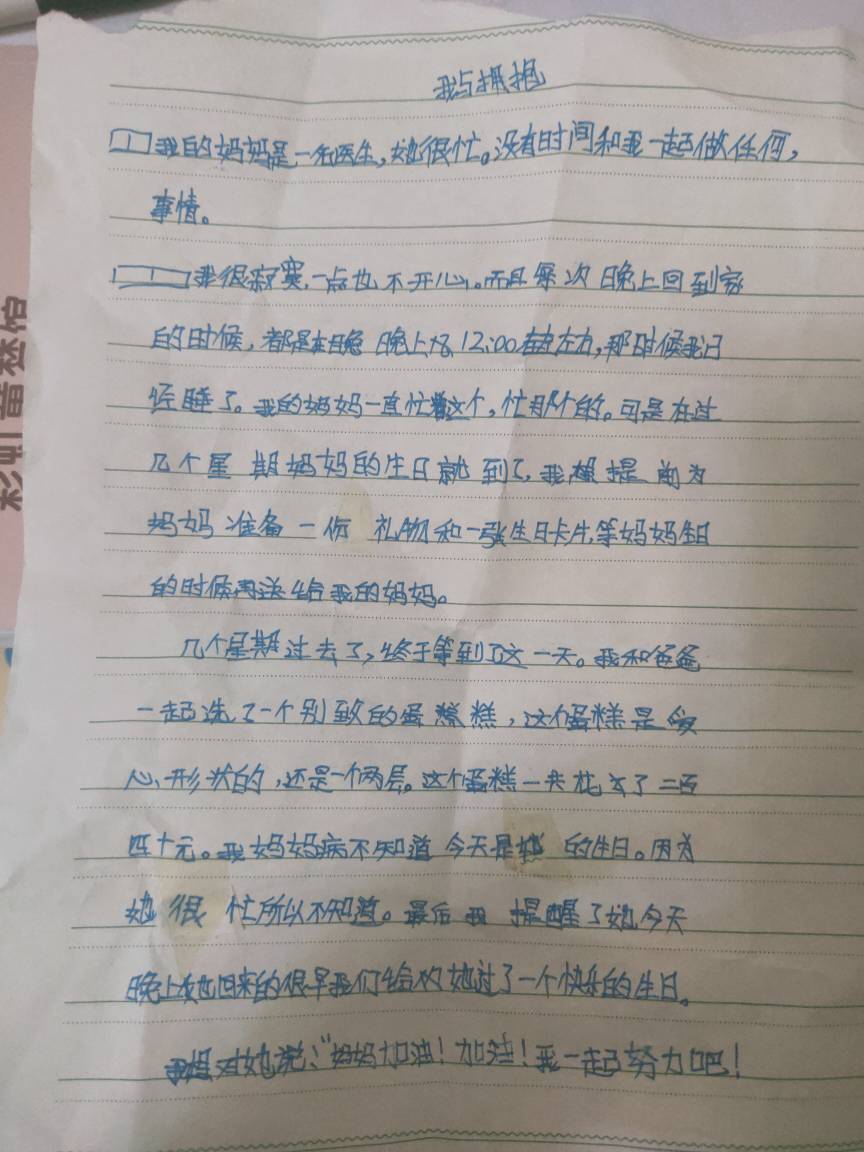 我与拥抱
我的妈妈是一名医生,她很忙。没有时间和我一起做任何,
事情。
我很寂寞,一点也不开心。而且每次晚上回到家
的时候,都是在晚 晚上大各12:00左右,那时候我已
经睡了。我的妈妈一直忙着这个,忙那个的。可是在过
几个星期妈妈的生日就到了,我想提前为
妈妈准备一份礼物和一张生日卡片,等妈妈生日
的时候再送给我的妈妈。
几个星期过去了,终于等到了这一天。我和爸爸
一起选了一个别致的蛋糕,这个蛋糕是爱
心形状的,还是一个两层。这个蛋糕一共花去了二百
四十元。我妈妈病不知道今天是她的生日。因为
她很忙所以不知道。最后我提醒了她今天
晚上她回来的很早我们给她过了一个快乐的生日。
我想对她说:“妈妈加油!加油!我一起努力吧!
彩虹